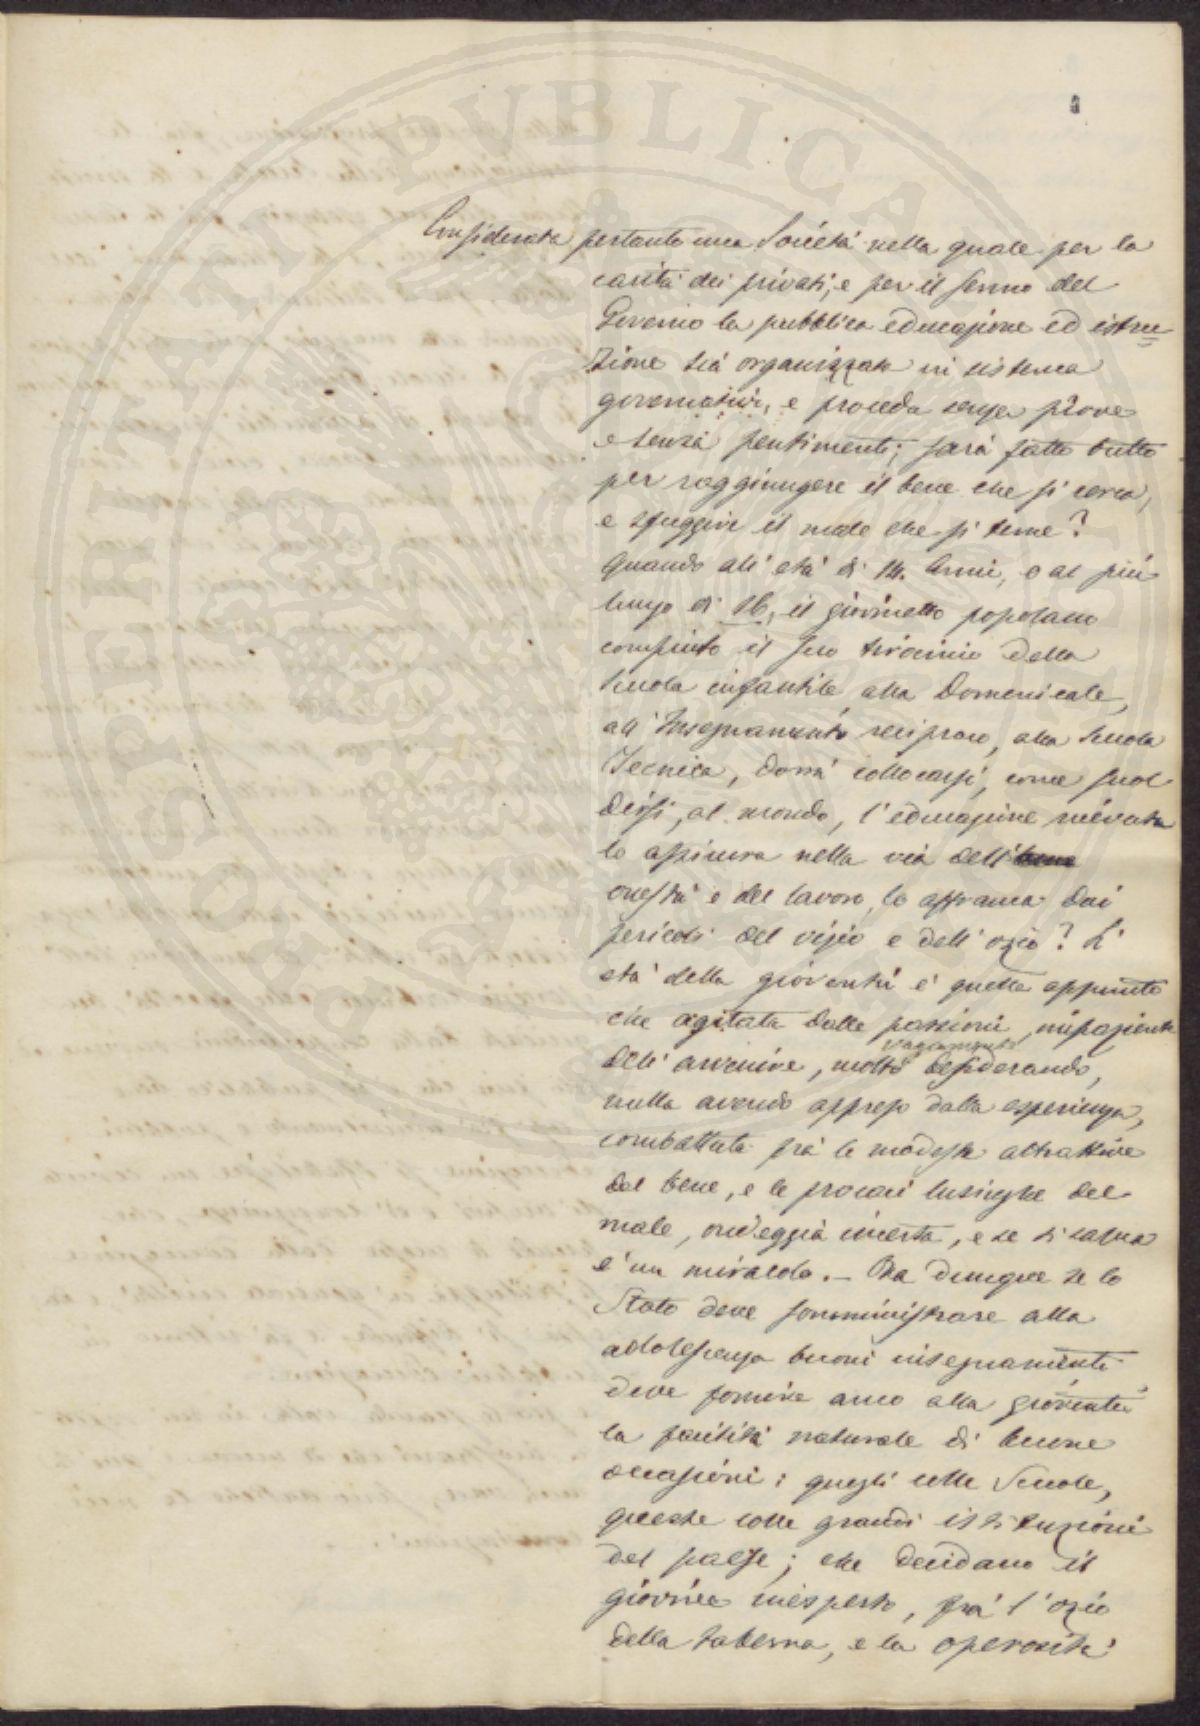 Considerata pertanto una Società nella quale per la
carità dei privati, e per il senno del
Governo la pubblica educazione ed istru-
zione sia organizzata in sistema
governativo, e proceda senza prove
e senza pentimenti; sarà fatto tutto
per raggiungere il bene che si cerca,
e sfuggire il male che si teme?
Quando all'età di 14. Anni, o al più
lungo di 16, il giovinetto popolano
compiuto il suo tirocinio della
Scuola infantile, alla Domenicale,
all'Insegnamento reciproco, alla Scuola
Tecnica, dovrà collocarsi, come suol
dirsi, al mondo, l'educazione ricevuta
lo assicura nella via dell'
onestà e del lavoro, lo affranca dai
pericoli del vizio e dell'ozio? L'
età della gioventù è quella appunto
che agitata dalle passioni, impaziente
dell'avvenire, molto vagamente desiderando,
nulla avendo appreso dalla esperienza,
combattuta frà le modeste attrattive
del bene, e le procaci lusinghe del
male, ondeggia incerta, e se si salva
è un miracolo. – Ora dunque se lo
Stato deve somministrare alla
adolescenza buoni insegnamenti
deve fornire anco alla gioventù
la facilità naturale di buone
occasioni: quegli colle Scuole,
queste colle grandi istituzioni
del paese; che decidano il
giovine inesperto, frà l'ozio
della taberna, e la operosità
PUBLICA